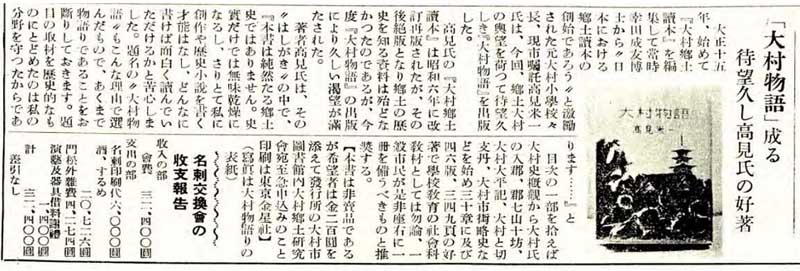 「大村物語」成る
待望久し高見氏の好著
大正十五
年、始めて
『大村鄕土
讀本』を編
集して當時
幸田成友博
士から〃日
本における
鄕土讀本の
創始であろう〃と激励
された元大村小學校々
長、現市嘱託高見米一
氏は、今回、鄕土大村
の輿望を荷つて待望久
しき『大村物語』を出版
した。
高見氏の『大村鄕土
讀本』は昭和六年に改
訂再版されたが、その
後絶版となり鄕土の歴
史を知る資料は殆どな
かつたのであるが、今
度『大村物語』の出版
により久しい渇望が滿
たされた。
著者高見氏は、その
〃はしがき〃の中で、
『本書は純然たる鄕土
史ではありません。史
實だけでは無味乾燥に
なるし、さりとて私に
創作や歴史小説を書く
才能はなし、どんなに
書けば面白く讀んでい
ただけるかと苦心しま
した。題名の〃大村物
語〃もこんな理由で選
んだもので、あくまで
物語りであることをお
斷りしておきます。題
目の取材を歴史的なも
のにとどめたのは私の
分野を守つたからであ
大村物語
高見米一
ります……』と
目次の一部を拾えば
大村史概觀から大村氏
の入郡、郡七山十坊、
大村太平記、大村と切
支丹、大村市街略史な
どを始め三十七章に及び
四六版、三四九頁の好
著で學校敎育の社會科
敎材としては勿論、一
般市民が是非座右に一
冊を備うべきものと推
奨する。
【本書は非賣品である
が希望者は金二百圓を
添えて發行所の大村市
圖書館内大村鄕土研究
會宛至急申込みのこと
印刷は東京金星社】
(寫眞は大村物語りの
表紙)
名刺交換會の
収支報告
収入の部
會費 三二、四〇〇圓
支出の部
酒、するめ
二〇、七二六圓
名刺印刷代六、〇〇〇圓
門松外雜費 四、二七四圓
演藝及器具借料謝禮
一、四〇〇圓
計 三二、四〇〇圓
差引なし